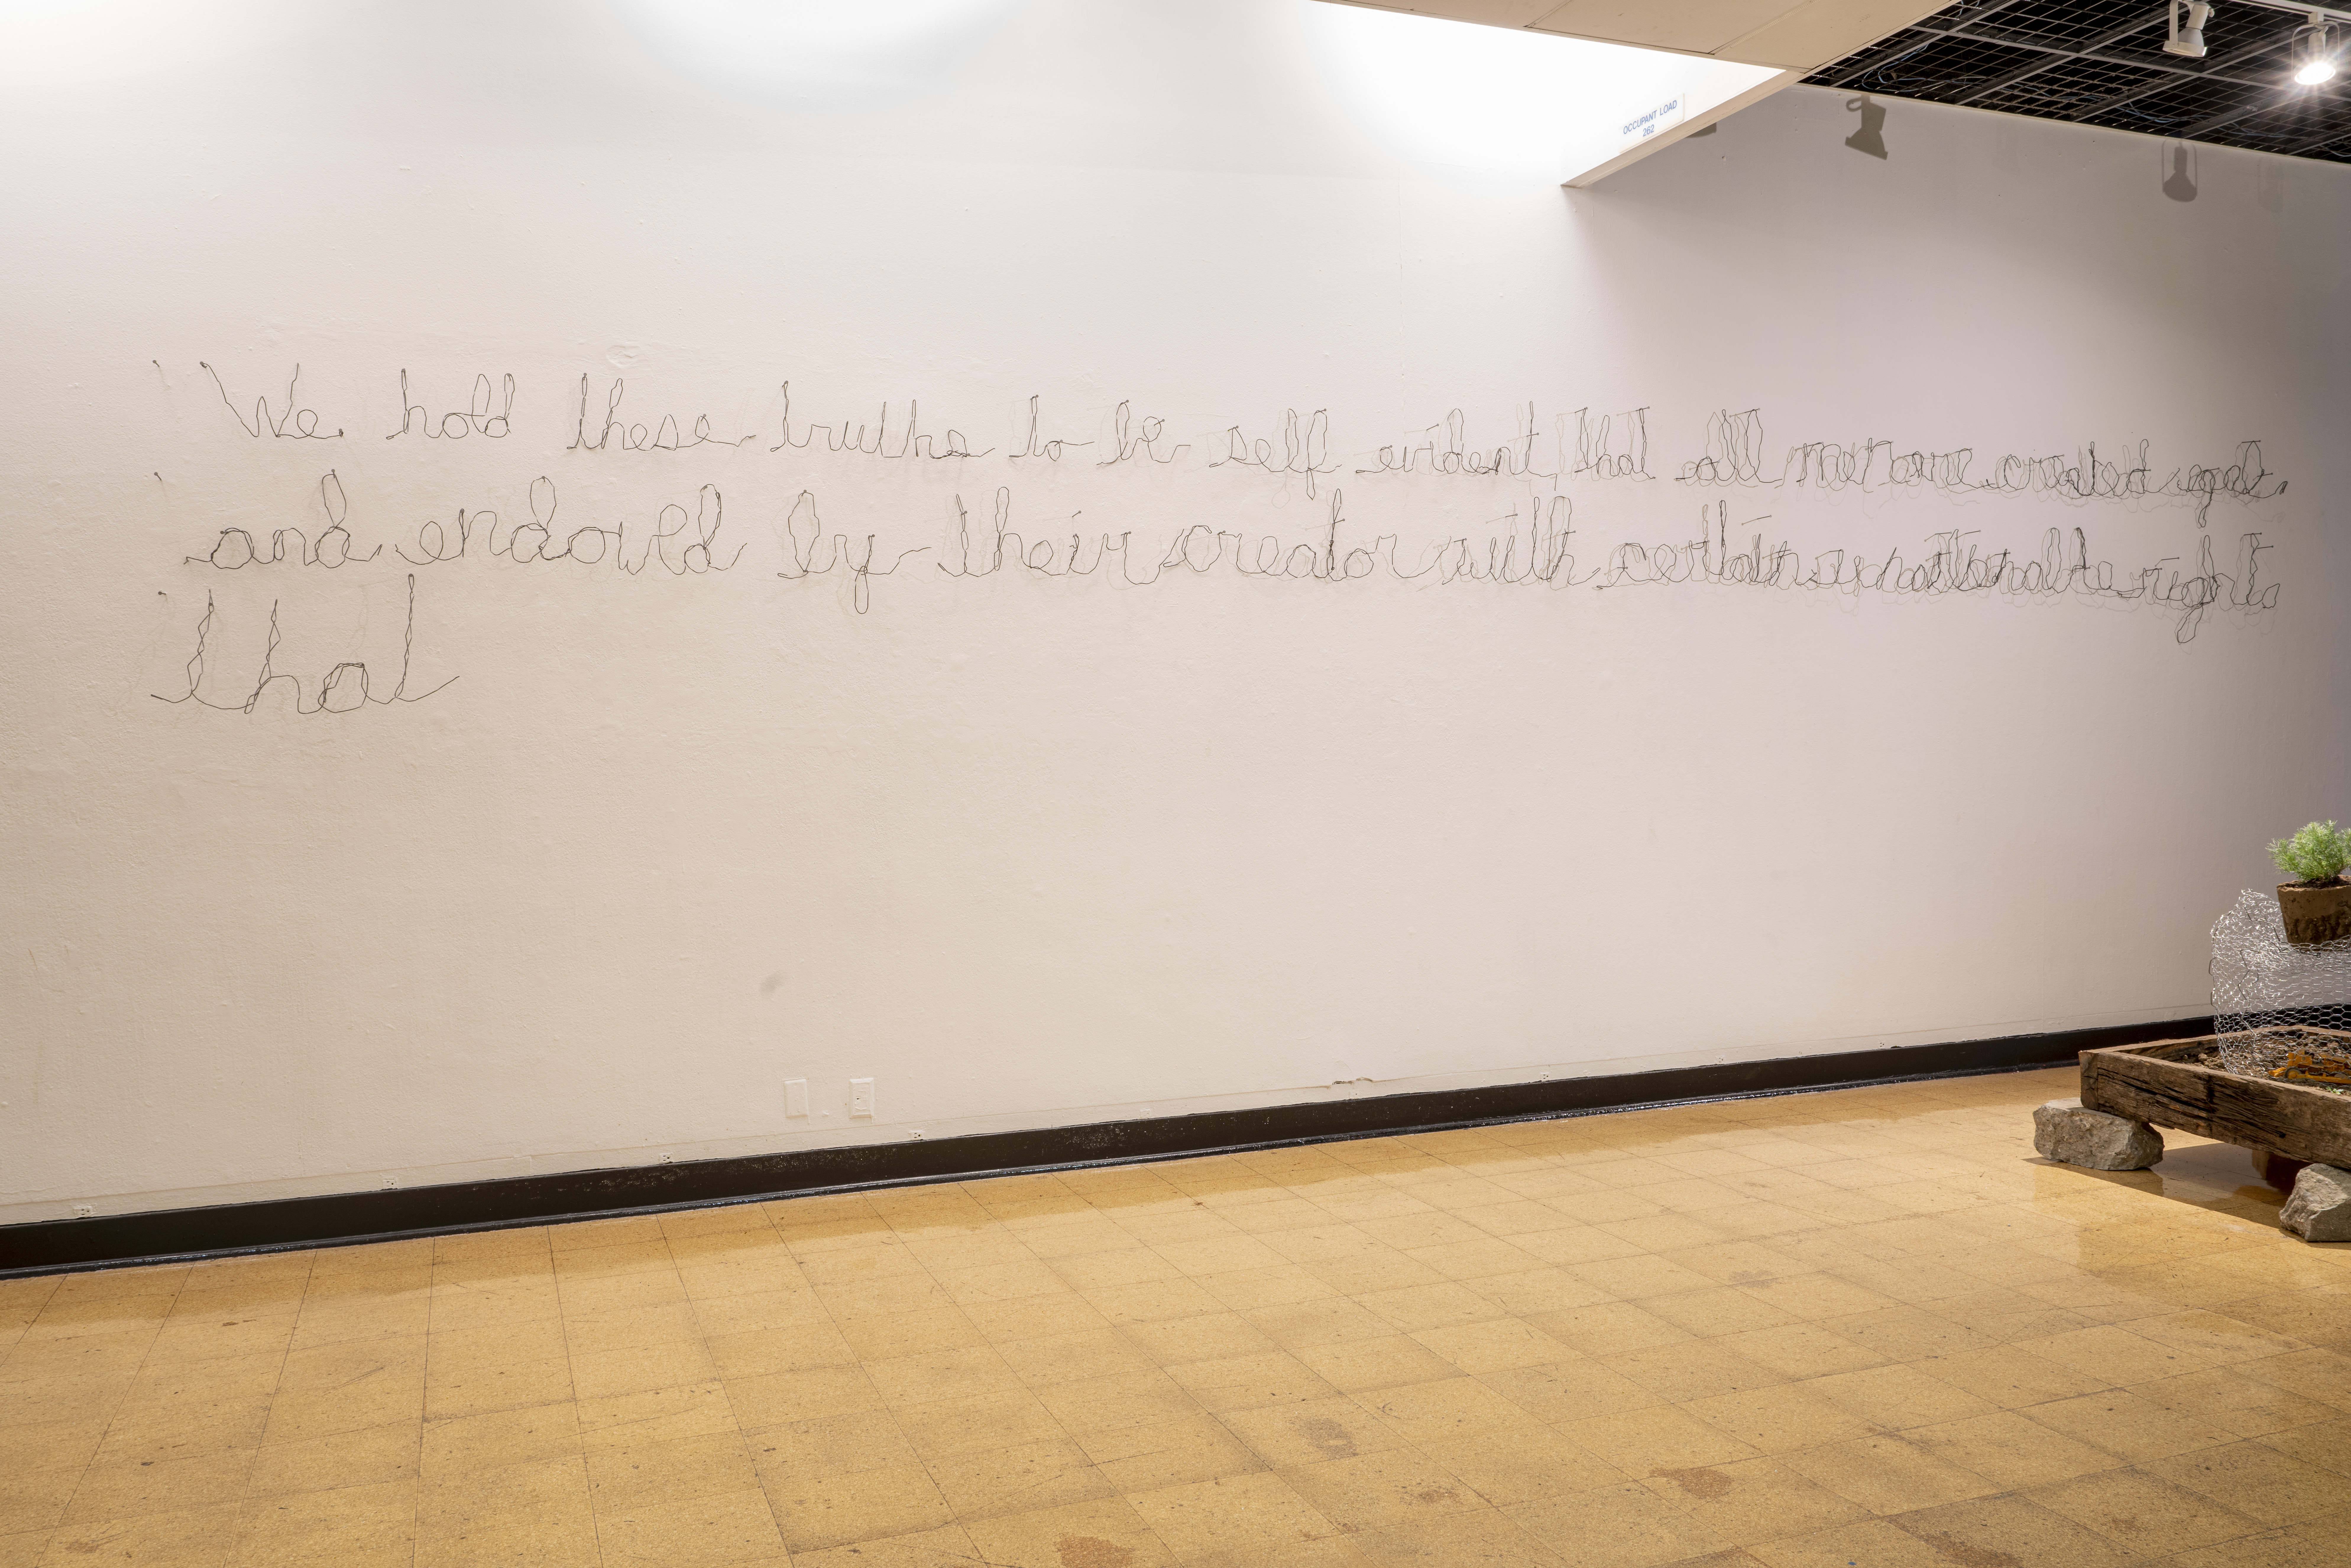 OCCUPANT LOAD
262
We hold these truths to be self evident, that all men are created
and endowed by their creator with certain rights
that